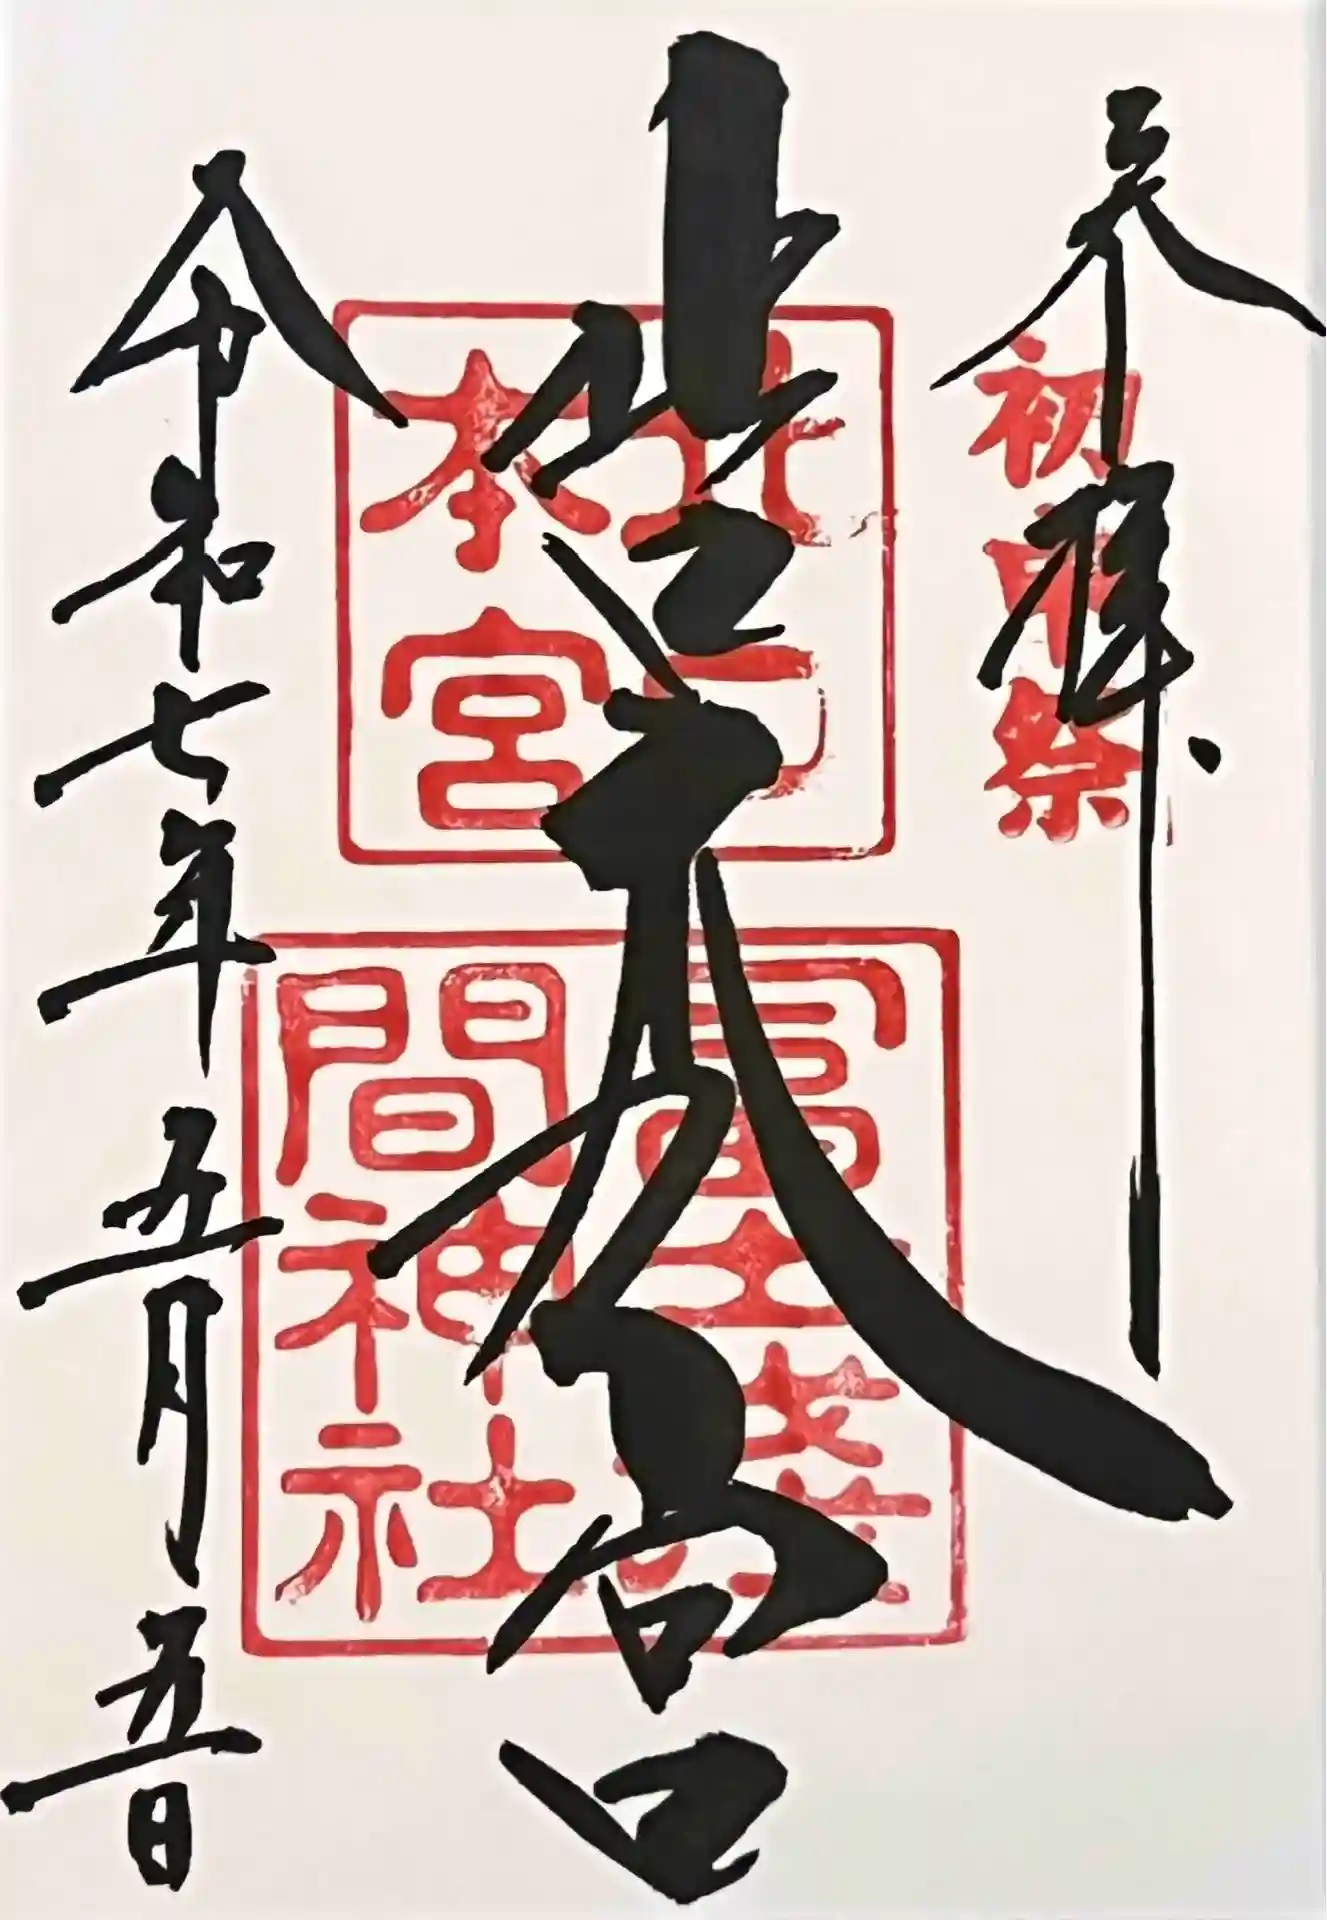 奉拝
初申祭
北口本宮
北口
本宮
冨士淺
間神社
令和七年五月五日